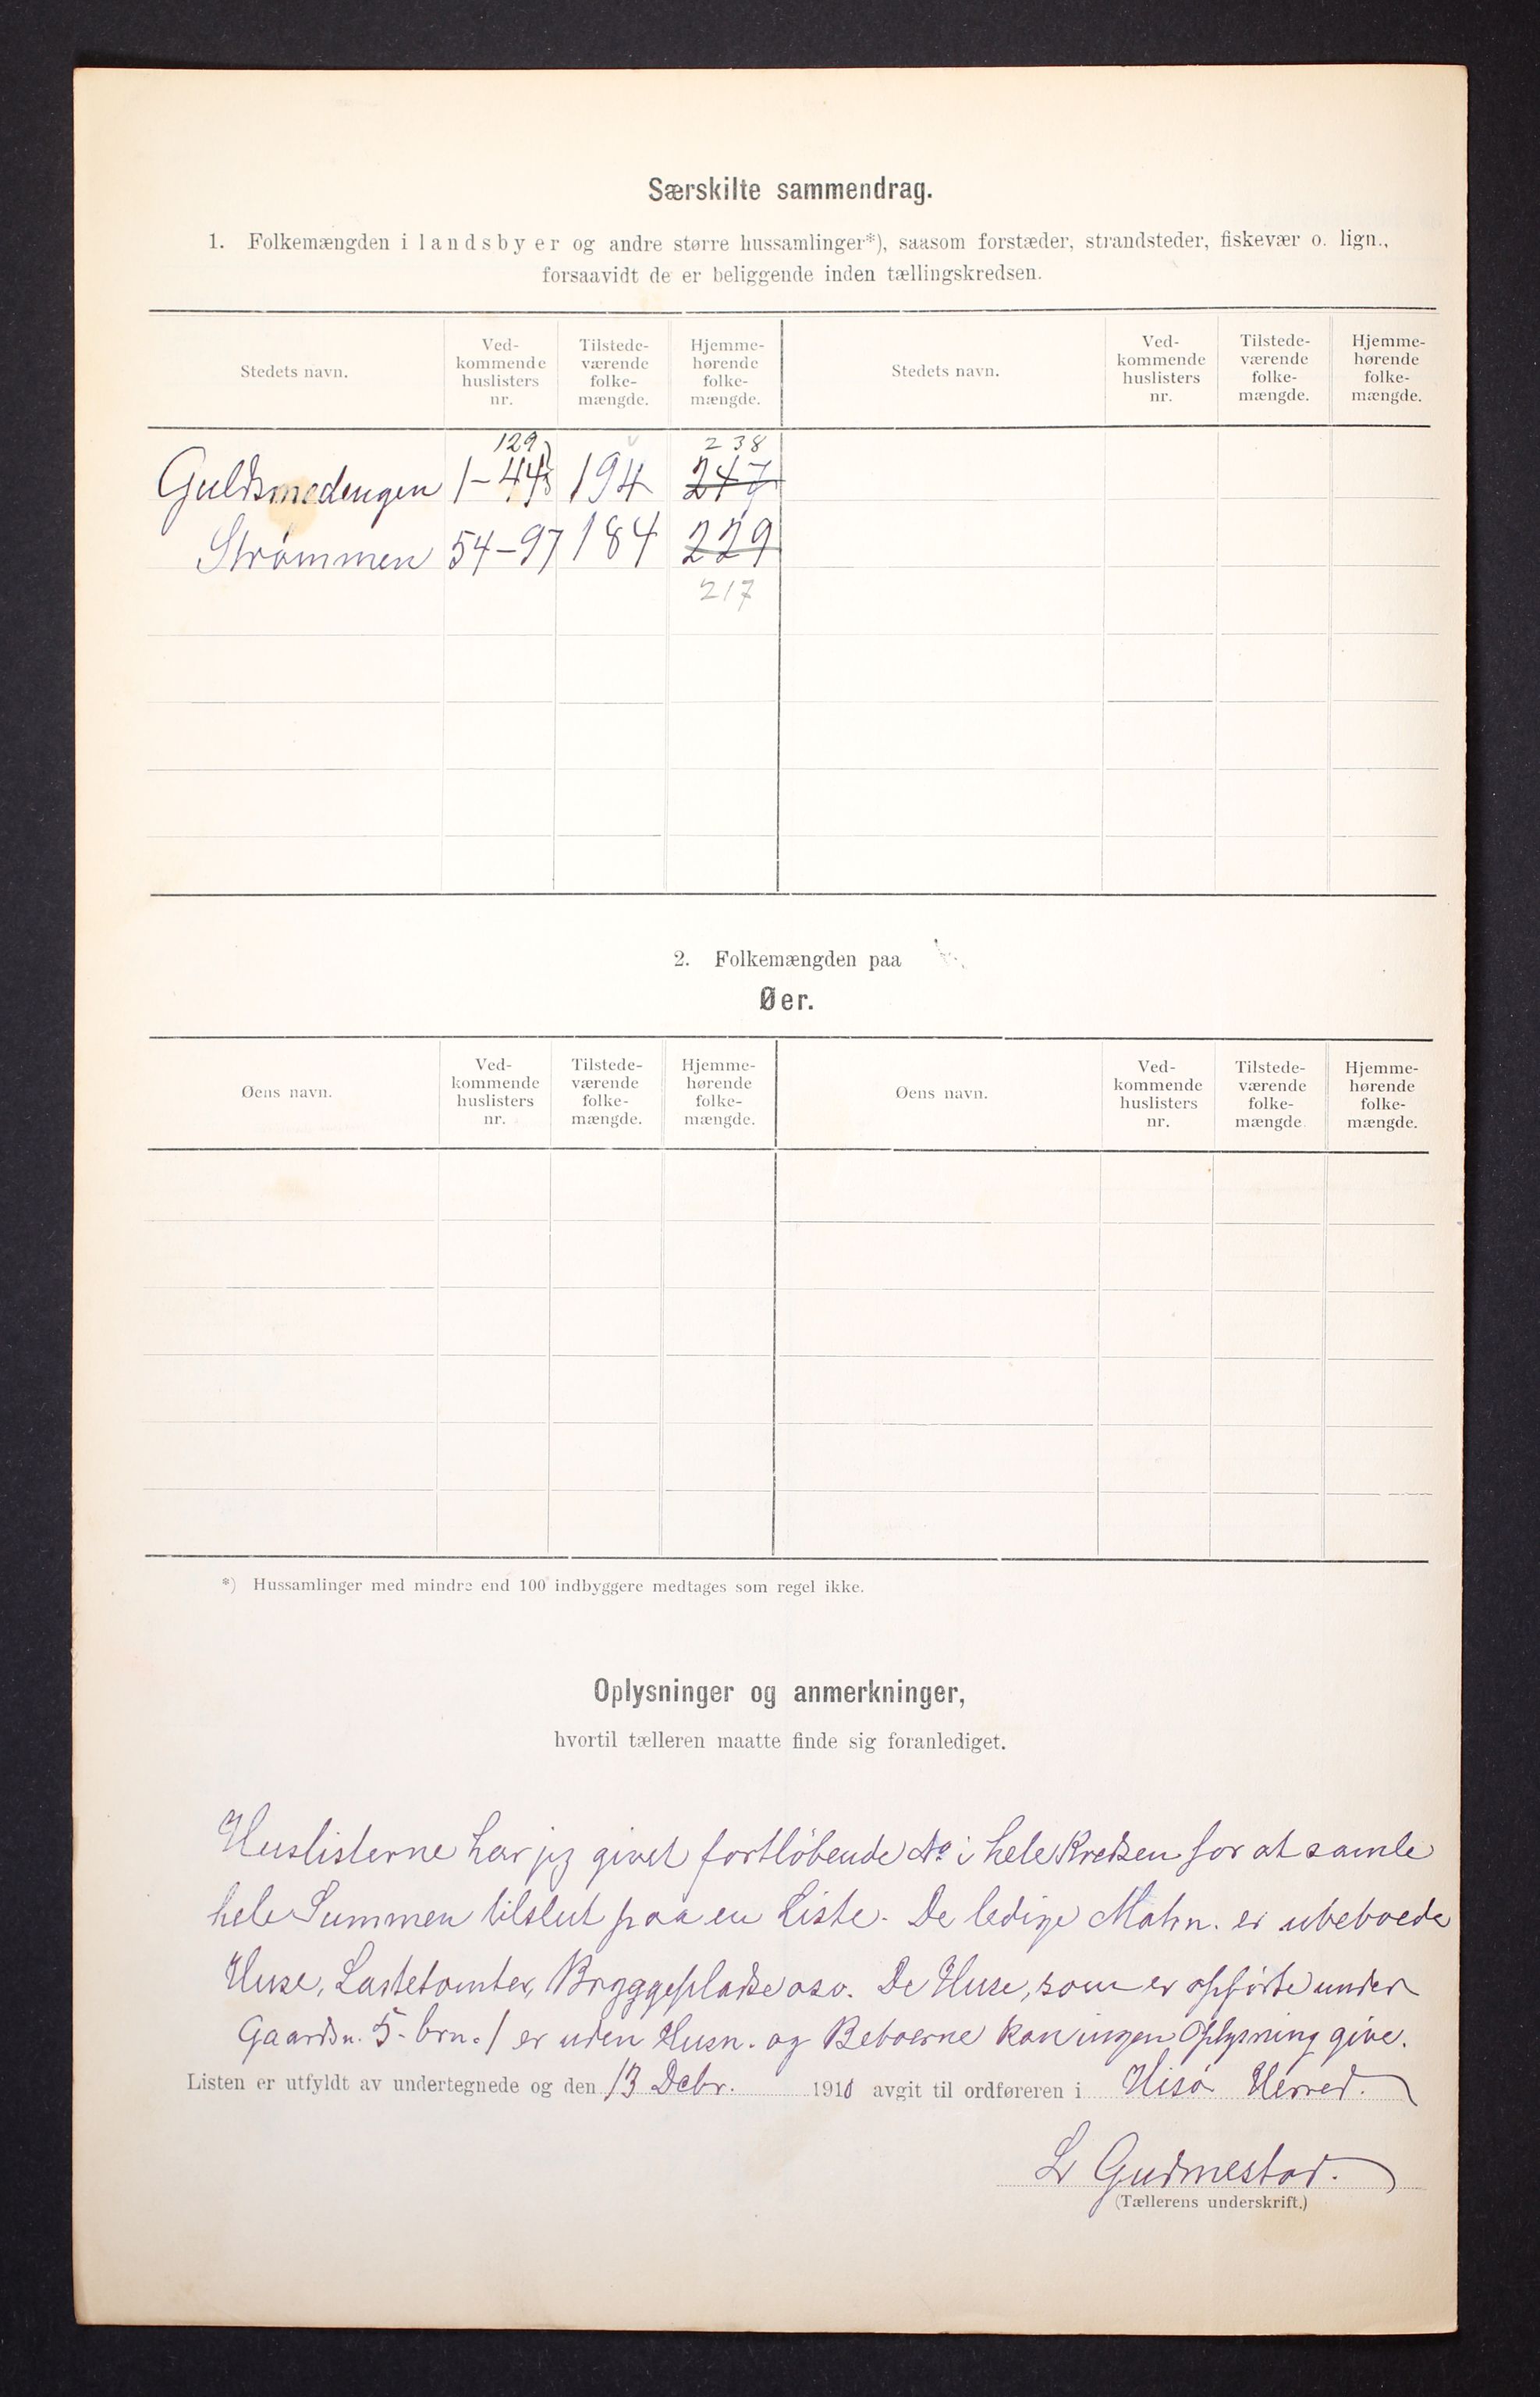 Særskilte sammendrag.
1. Folkemængden i landsbyer og andre større hussamlinger*), saasom forstæder, strandsteder, fiskevær o. lign.,
forsaavidt de er beliggende inden tællingskredsen.
Stedets navn. Ved-kommende huslisters nr. Tilstede-værende folke-mængde. Hjemme-hørende folke-mængde. Stedets navn. Ved-kommende huslisters nr. Tilstede-værende folke-mængde. Hjemme-hørende folke-mængde.
129 238
Guldsmedengen 1-44 194 247
Strømmen 54-97 184 229
217
2. Folkemængden paa
Øer.
Øens navn. Ved-kommende huslisters nr. Tilstede-værende folke-mængde. Hjemme-hørende folke-mængde. Øens navn. Ved-kommende huslisters nr. Tilstede-værende folke-mængde Hjemme-hørende folke-mængde.
*) Hussamlinger med mindre end 100 indbyggere medtages som regel ikke.
Oplysninger og anmerkninger,
hvortil tælleren maatte finde sig foranlediget.
Huslisterne har jeg givet fortløbende No i hele Kredsen for at samle
hele Summen tilslut paa en Liste. De ledige Matrn. er ubeboede
Huse, Lastetomter, Bryggepladse oso. De Huse, som er opførte under
Gaardsn. 5. brn. 1 er uden Husn. og Beboerne kan ingen Oplysning give.
Listen er utfyldt av undertegnede og den 13 Debr. 1910 avgit til ordføreren i Hisø Herred.
L Gudmestad.
(Tællerens underskrift.)